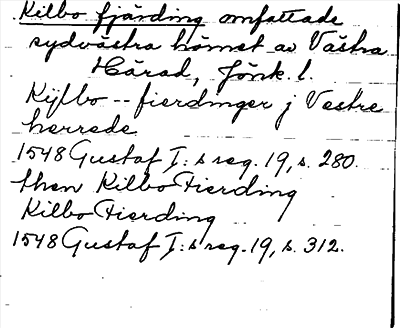 Kilbo fjärding omfattade
sydvästra hörnet av Västra
Härad, Jönk. l.
Kijlbo -- fierdinger j Vestre
herrede
1548 Gustaf I:s reg. 19, s. 280.
then Kilbo Fierding
Kilbo Fierding
1548 Gustaf I:s reg. 19, s. 312.